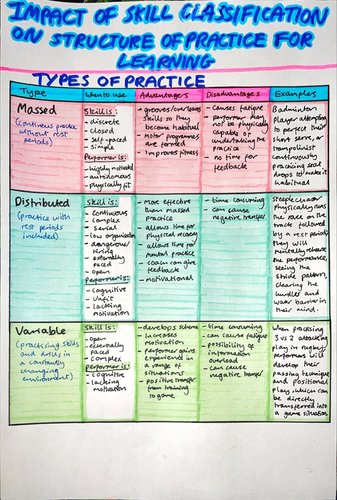 IMPACT OF SKILL CLASSIFICATION
ON STRUCTURE OF PRACTICE FOR
LEARNING
TYPES OF PRACTICE
Type
When to use
Advantages
Disadvantages
Examples
Massed
(continuous practice
without rest
periods)
Skill is:
- discrete
- closed
- self-paced
- simple
Performer is:
- highly motivated
- autonomous
- physically fit
- grooves/overlearns
skills so they
become habitual
- motor programmes
are formed
- improves fitness
- causes fatigue
- performer may
not be physically
capable of
undertaking the
practice
- no time for
feedback
Badminton
player attempting
to perfect their
short serve, or
trampolinist
continuously
practicing seat
drops to make it
habitual
Distributed
(practice with
rest periods
included)
Skill is:
- continuous
- complex
- serial
- low organisation
- dangerous/
tiring
- externally
paced
- open
Performer is:
- cognitive
- unfit
- lacking
motivation
- more effective
than massed
practice
- allows time for
physical recovery
- allows time for
mental practice
- coach can give
feedback
- motivational
- time consuming
- can cause
negative transfer
Steeplechaser
physically runs
the race on the
track followed
by a rest period,
they will
mentally rehearse
the performance,
seeing the
stride pattern,
clearing the
hurdles and
water barrier in
their mind.
Variable
(practising skills
and drills in a
constantly
changing
environment)
Skill is:
- open
- externally
paced
- complex
Performer is:
- cognitive
- lacking
motivation
- develops schema
- increases
motivation
- performer gains
experience in
a range of
situations
- positive transfer
from training
to game
- time consuming
- can cause fatigue
- possibility of
information
overload
- can cause
negative transfer
When practising
3 vs 2 attacking
play in rugby,
performers will
develop their
passing technique
and positional
play, which can
be directly
transferred into
a game situation